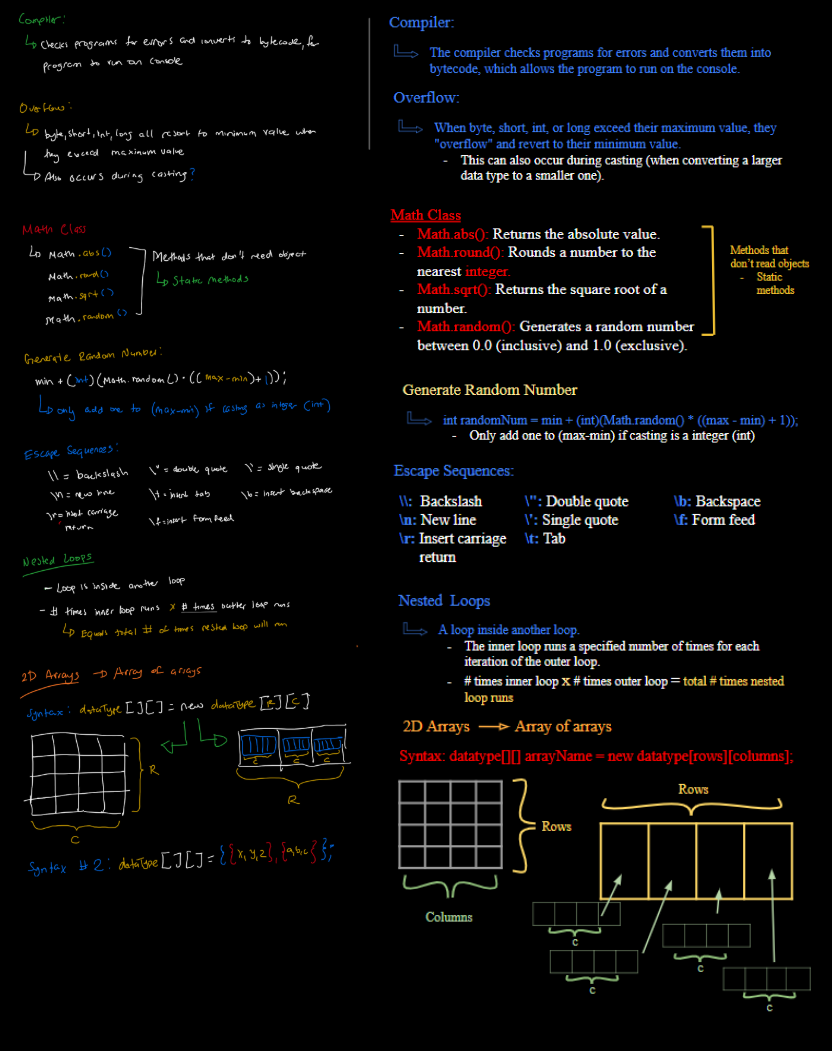 Compiler:
↳ Checks programs for errors and converts to bytecode, for
program to run on console
Overflow:
↳ byte, short, int, long all resort to minimum value when
they exceed maximum value
↳ Also occurs during casting?
Math Class
↳ Math.abs()
Math.round()
Math.sqrt()
Math.random()
Methods that don't need object
↳ Static methods
Generate Random Number:
min + (int)(Math.random() * ((max-min)+1));
↳ only add one to (max-min) if casting as integer (int)
Escape Sequences:
\\ = backslash \" = double quote \' = single quote
\n = new line \t = insert tab \b = insert backspace
\r = insert carriage
return
\f = insert form feed
Nested Loops
- Loop is inside another loop
- # times inner loop runs x # times outter loop runs
↳ Equals total # of times nested loop will run
2D Arrays → Array of arrays
Syntax: dataType [][] = new dataType [R][C]
R
C
C C C
R
Syntax #2: dataType [][] = {{x,y,z},{a,b,c}};
Compiler:
The compiler checks programs for errors and converts them into
bytecode, which allows the program to run on the console.
Overflow:
When byte, short, int, or long exceed their maximum value, they
"overflow" and revert to their minimum value.
- This can also occur during casting (when converting a larger
data type to a smaller one).
Math Class
- Math.abs(): Returns the absolute value.
- Math.round(): Rounds a number to the
nearest integer.
- Math.sqrt(): Returns the square root of a
number.
- Math.random(): Generates a random number
between 0.0 (inclusive) and 1.0 (exclusive).
Methods that
don't read objects
- Static
methods
Generate Random Number
int randomNum = min + (int)(Math.random() * ((max - min) + 1));
- Only add one to (max-min) if casting is a integer (int)
Escape Sequences:
\\: Backslash \": Double quote \b: Backspace
\n: New line \': Single quote \f: Form feed
\r: Insert carriage \t: Tab
return
Nested Loops
A loop inside another loop.
- The inner loop runs a specified number of times for each
iteration of the outer loop.
- # times inner loop x # times outer loop = total # times nested
loop runs
2D Arrays → Array of arrays
Syntax: datatype[][] arrayName = new datatype[rows][columns];
Rows
Rows
Columns
C
C
C
C